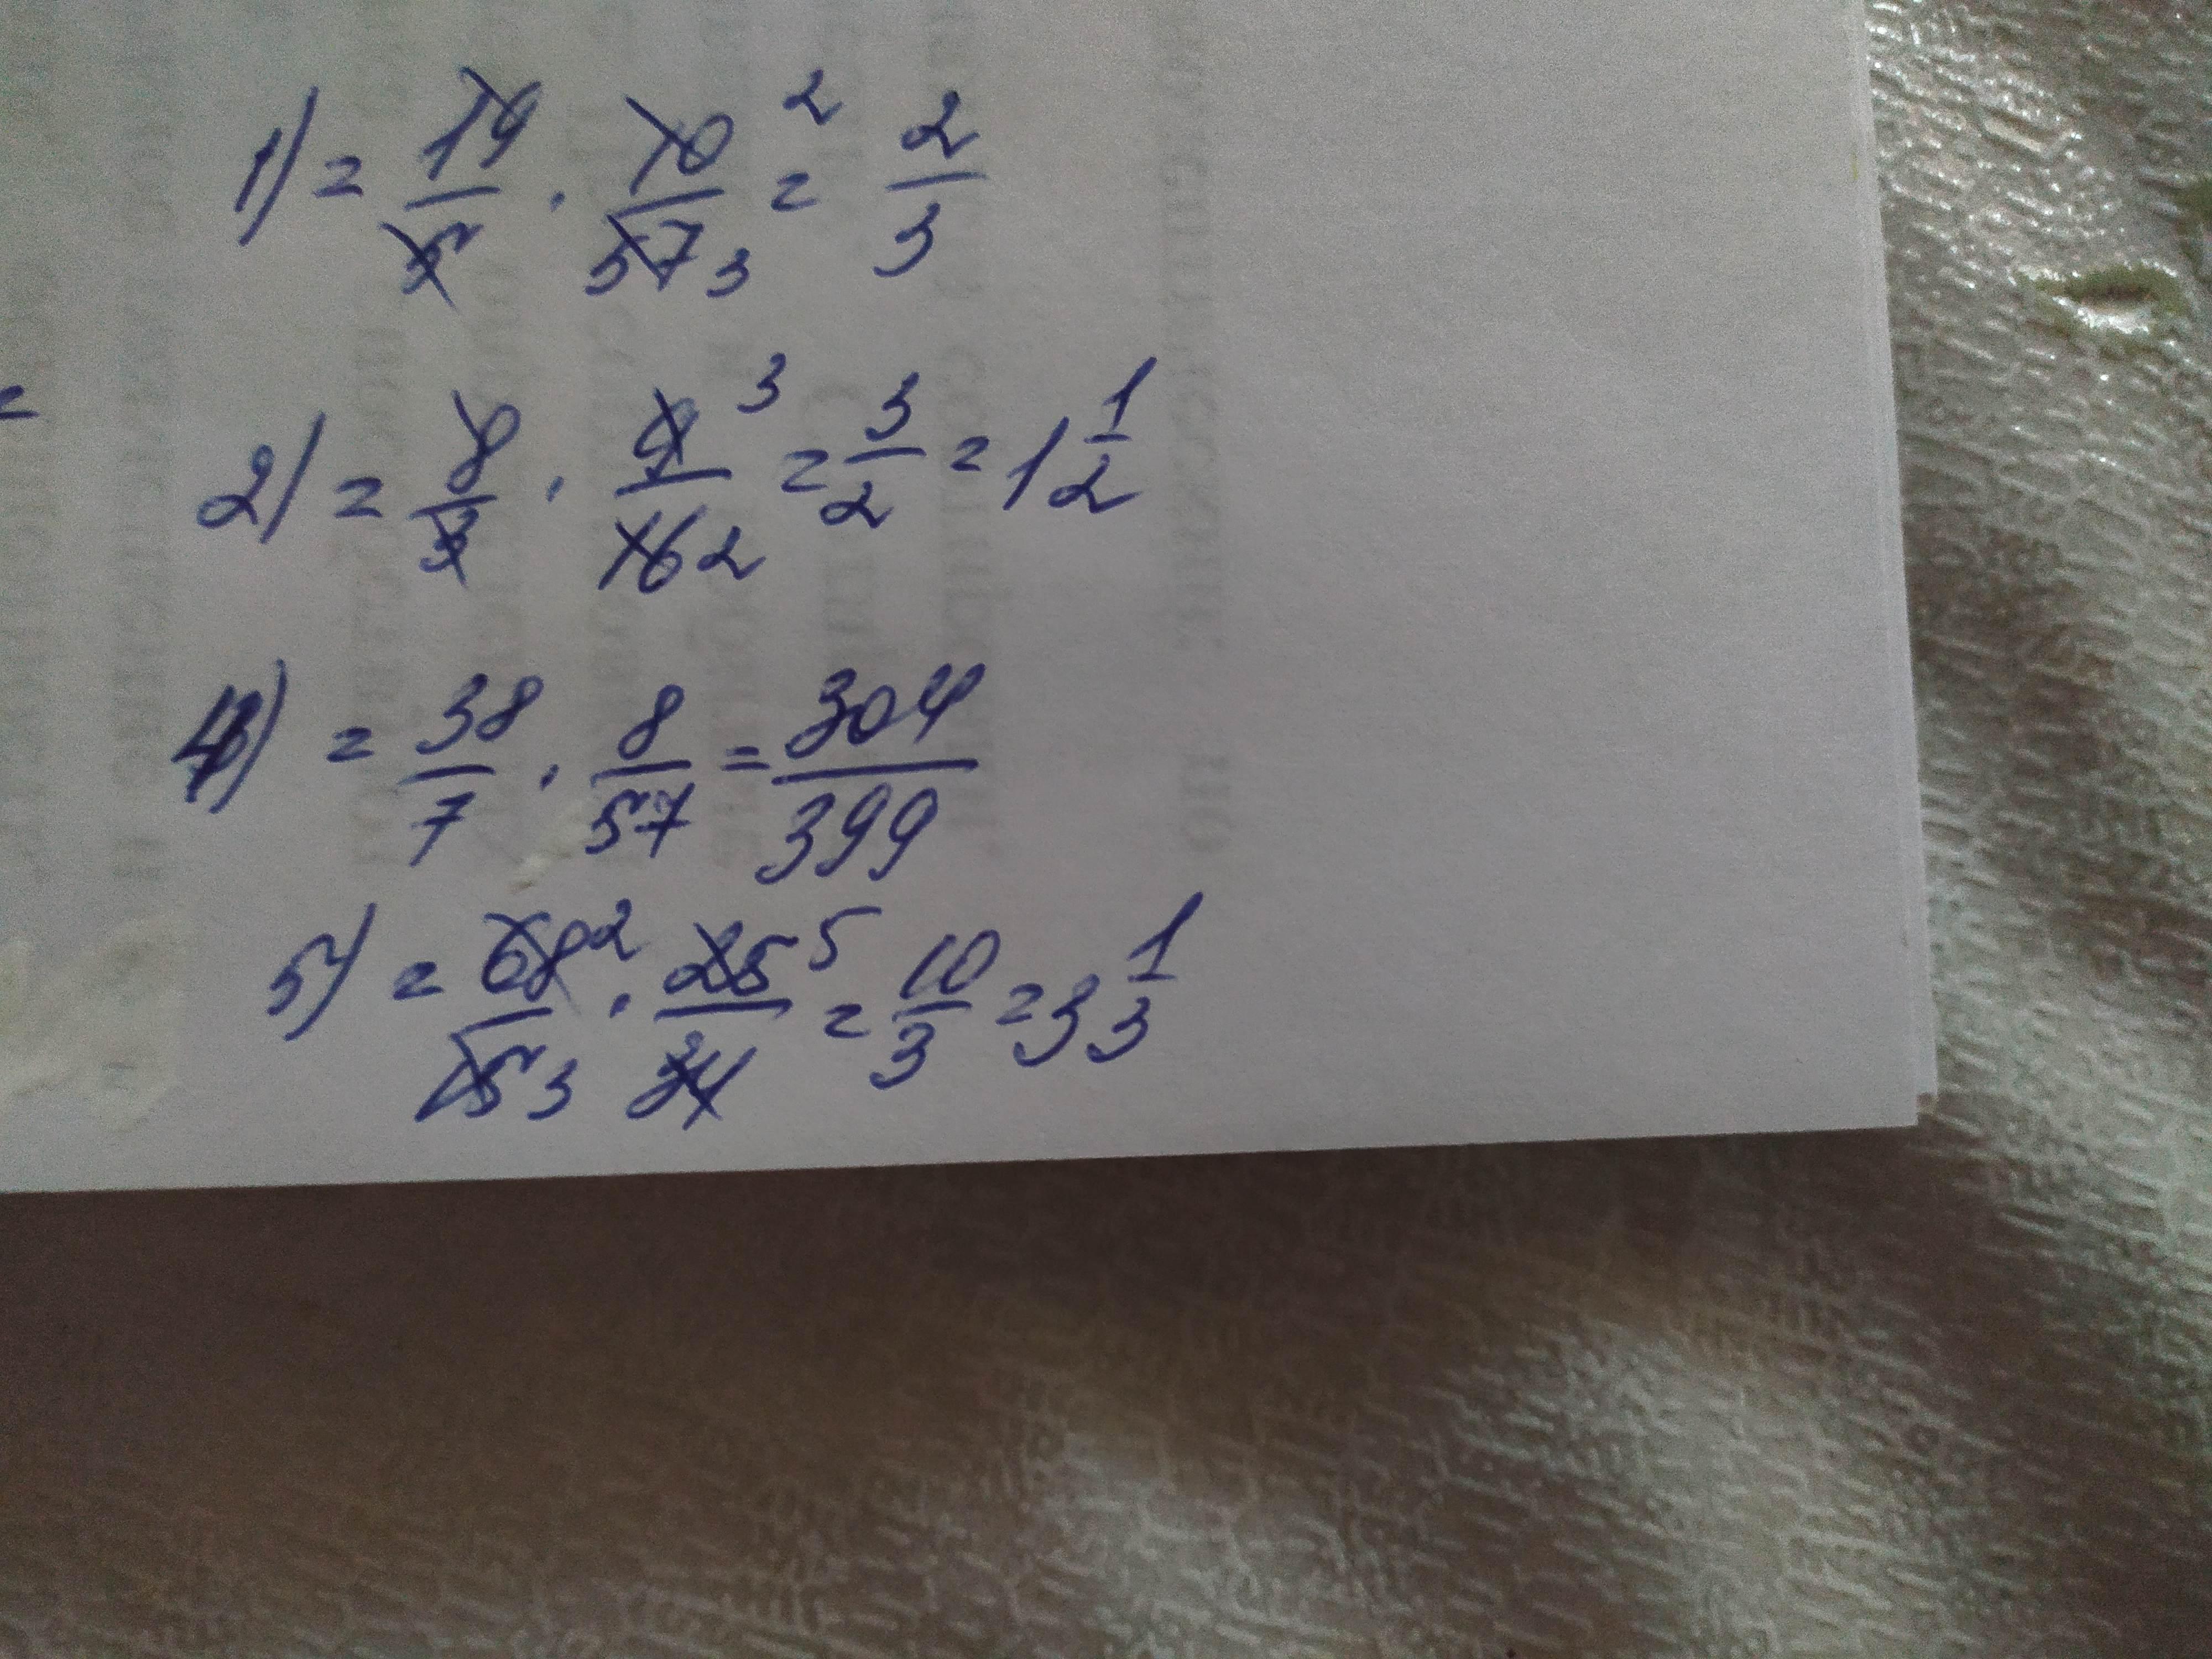 1) = 19/5 · 10/57 2 3 = 2/3
2) = 8/3 · 9/16 3 2 = 3/2 = 1 1/2
4) = 38/7 · 8/57 = 304/399
5) = 68/15 2 3 · 25/34 5 = 10/3 = 3 1/3